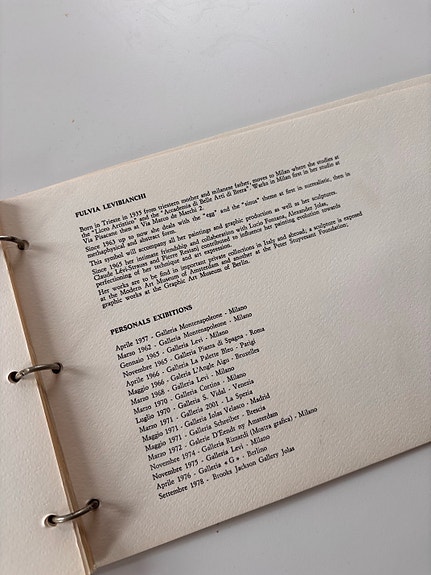 FULVIA LEVIBIANCHI
Born in Trieste in 1935 from triestern mother and milanese father, moves to Milan where she studies at
the "Liceo Artistico" and the "Accademia di Belle Arti di Brera". Works in Milan first in her studio at
Via Pisacane then at Via Marco de Marchi 2.
Since 1963 up to now she deals with the "egg" and the "sinus" theme at first in surrealistic, then in
metaphysical and abstract form.
This symbol will accompany all her paintings and graphic production as well as her sculptures.
Since 1965 her intimate friendship and collaboration with Lucio Fontana, Alexander Jolas,
Claude Lévi-Strauss and Pierre Restany contributed to influence her painting evolution towards
perfectioning of her technique and art expression.
Her works are to be find in important private collections in Italy and abroad; a sculpture is exposed
at the Modern Art Museum of Amsterdam and another at the Peter Stuyvesant Foundation;
graphic works at the Graphic Art Museum of Berlin.
PERSONALS EXIBITIONS
Aprile 1957 - Galleria Montenapoleone - Milano
Marzo 1962 - Galleria Montenapoleone - Milano
Gennaio 1965 - Galleria Levi - Milano
Novembre 1965 - Galleria Piazza di Spagna - Roma
Aprile 1966 - Galleria La Palette Bleu - Parigi
Maggio 1966 - Galleria L'Angle Aigu - Bruxelles
Marzo 1968 - Galleria Levi - Milano
Marzo 1970 - Galleria Cortina - Milano
Luglio 1970 - Galleria S. Vidal - Venezia
Marzo 1971 - Galleria 2001 - La Speria
Maggio 1971 - Galleria Iolas Velasco - Madrid
Maggio 1971 - Galleria Schreiber - Brescia
Marzo 1972 - Galerie D'Eendt ny Amsterdam
Novembre 1974 - Galleria Rizzardi (Mostra grafica) - Milano
Novembre 1975 - Galleria Levi - Milano
Aprile 1976 - Galleria « G » - Berlino
Settembre 1978 - Brooks Jackson Gallery Jolas